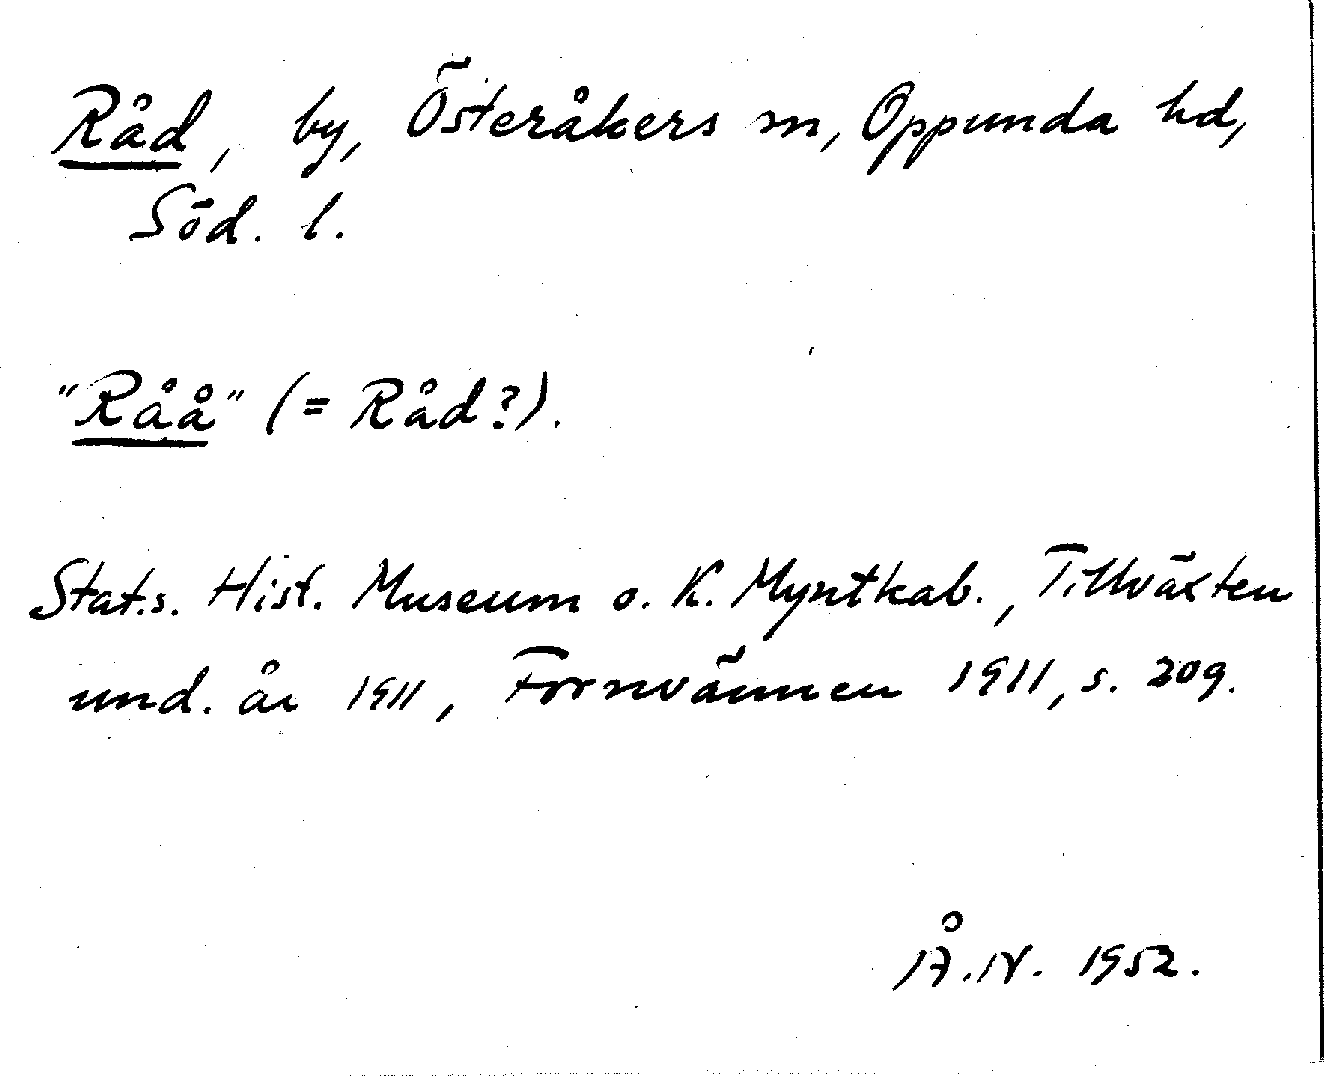 Råd, by, Österåkers sn, Oppunda hd,
Söd. l.
"Råå" (= Råd?).
Stat.s. Hist. Museum o. K. Myntkab., Tillväxten
und. år 1911, Fornvännen 1911, s. 209.
Å.N. 1952.